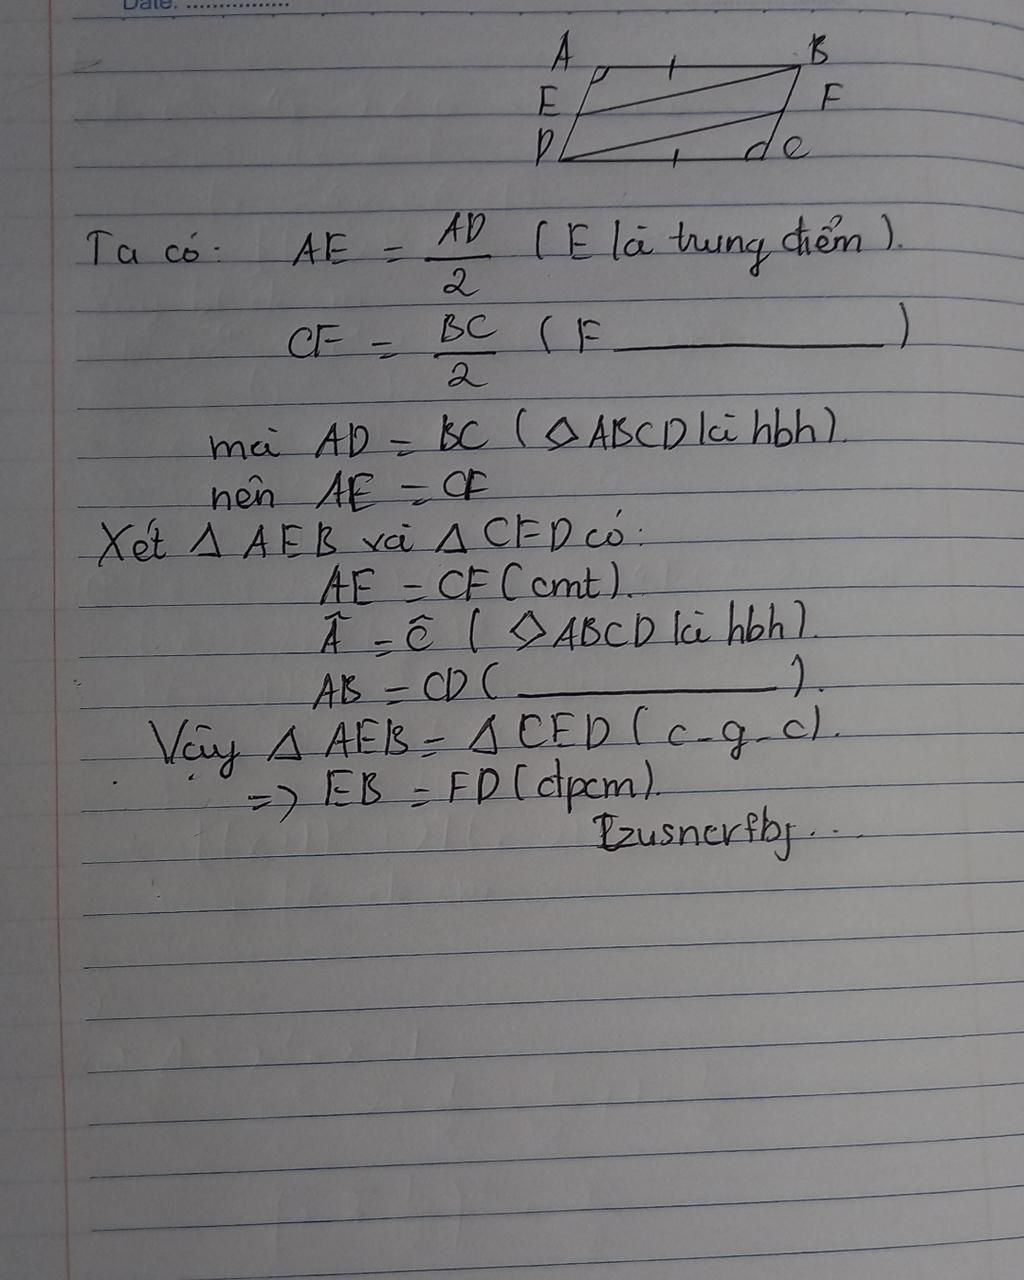 Date: ................
A B
E F
D C
Ta có: AE = AD/2 (E là trung điểm).
CF = BC/2 (F ________)
mà AD = BC (▱ABCD là hbh).
nên AE = CF
Xét Δ AEB và Δ CFD có:
AE = CF (cmt).
Â = Ĉ (▱ABCD là hbh).
AB = CD (________).
Vậy Δ AEB = Δ CED (c-g-c).
=> EB = FD (đpcm).